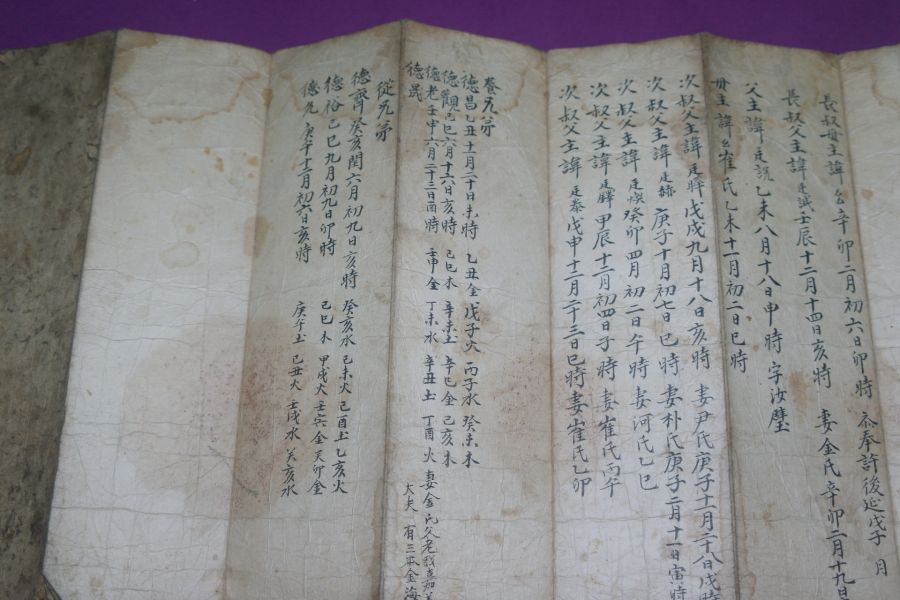 長叔母主諱 辛卯二月初六日卯時 奉許後延戊子 月
長叔父主諱廷 壬辰十二月十四日亥時 妻金氏辛卯二月十九日
父主諱廷說乙未八月十八日申時 字汝璧
母主諱 崔氏乙未十一月初二日巳時
次叔父主諱廷 戊戌九月十八日亥時 妻尹氏庚子十一月二十八日戌時
次叔父主諱廷赫 庚子十月初七日巳時 妻朴氏庚子二月十一日寅時
次叔父主諱廷煥癸卯四月初二日午時 妻河氏乙巳
次叔父主諱廷 甲辰十二月初四日子時 妻崔氏丙午
次叔父主諱廷泰戊申十二月二十三日巳時妻崔氏乙卯
養兄弟
德昌乙丑十一月二十日未時 乙丑金 戊子火 丙子水 癸未木
德觀己巳六月十六日亥時 己巳木 辛未土 辛巳金 己亥木
德老壬申六月二十三日酉時 壬申金 丁未水 辛丑土 丁酉火 妻金氏父老 嘉
大夫 有三 本金海
德
從兄弟
德齊癸亥閏六月初九日亥時 癸亥水 己未火 己酉土 乙亥火
德裕己巳九月初九日卯時 己巳木 甲戌火 壬寅金 癸卯金
德允庚午十二月初六日亥時 庚午土 己丑火 壬戌水 癸亥水